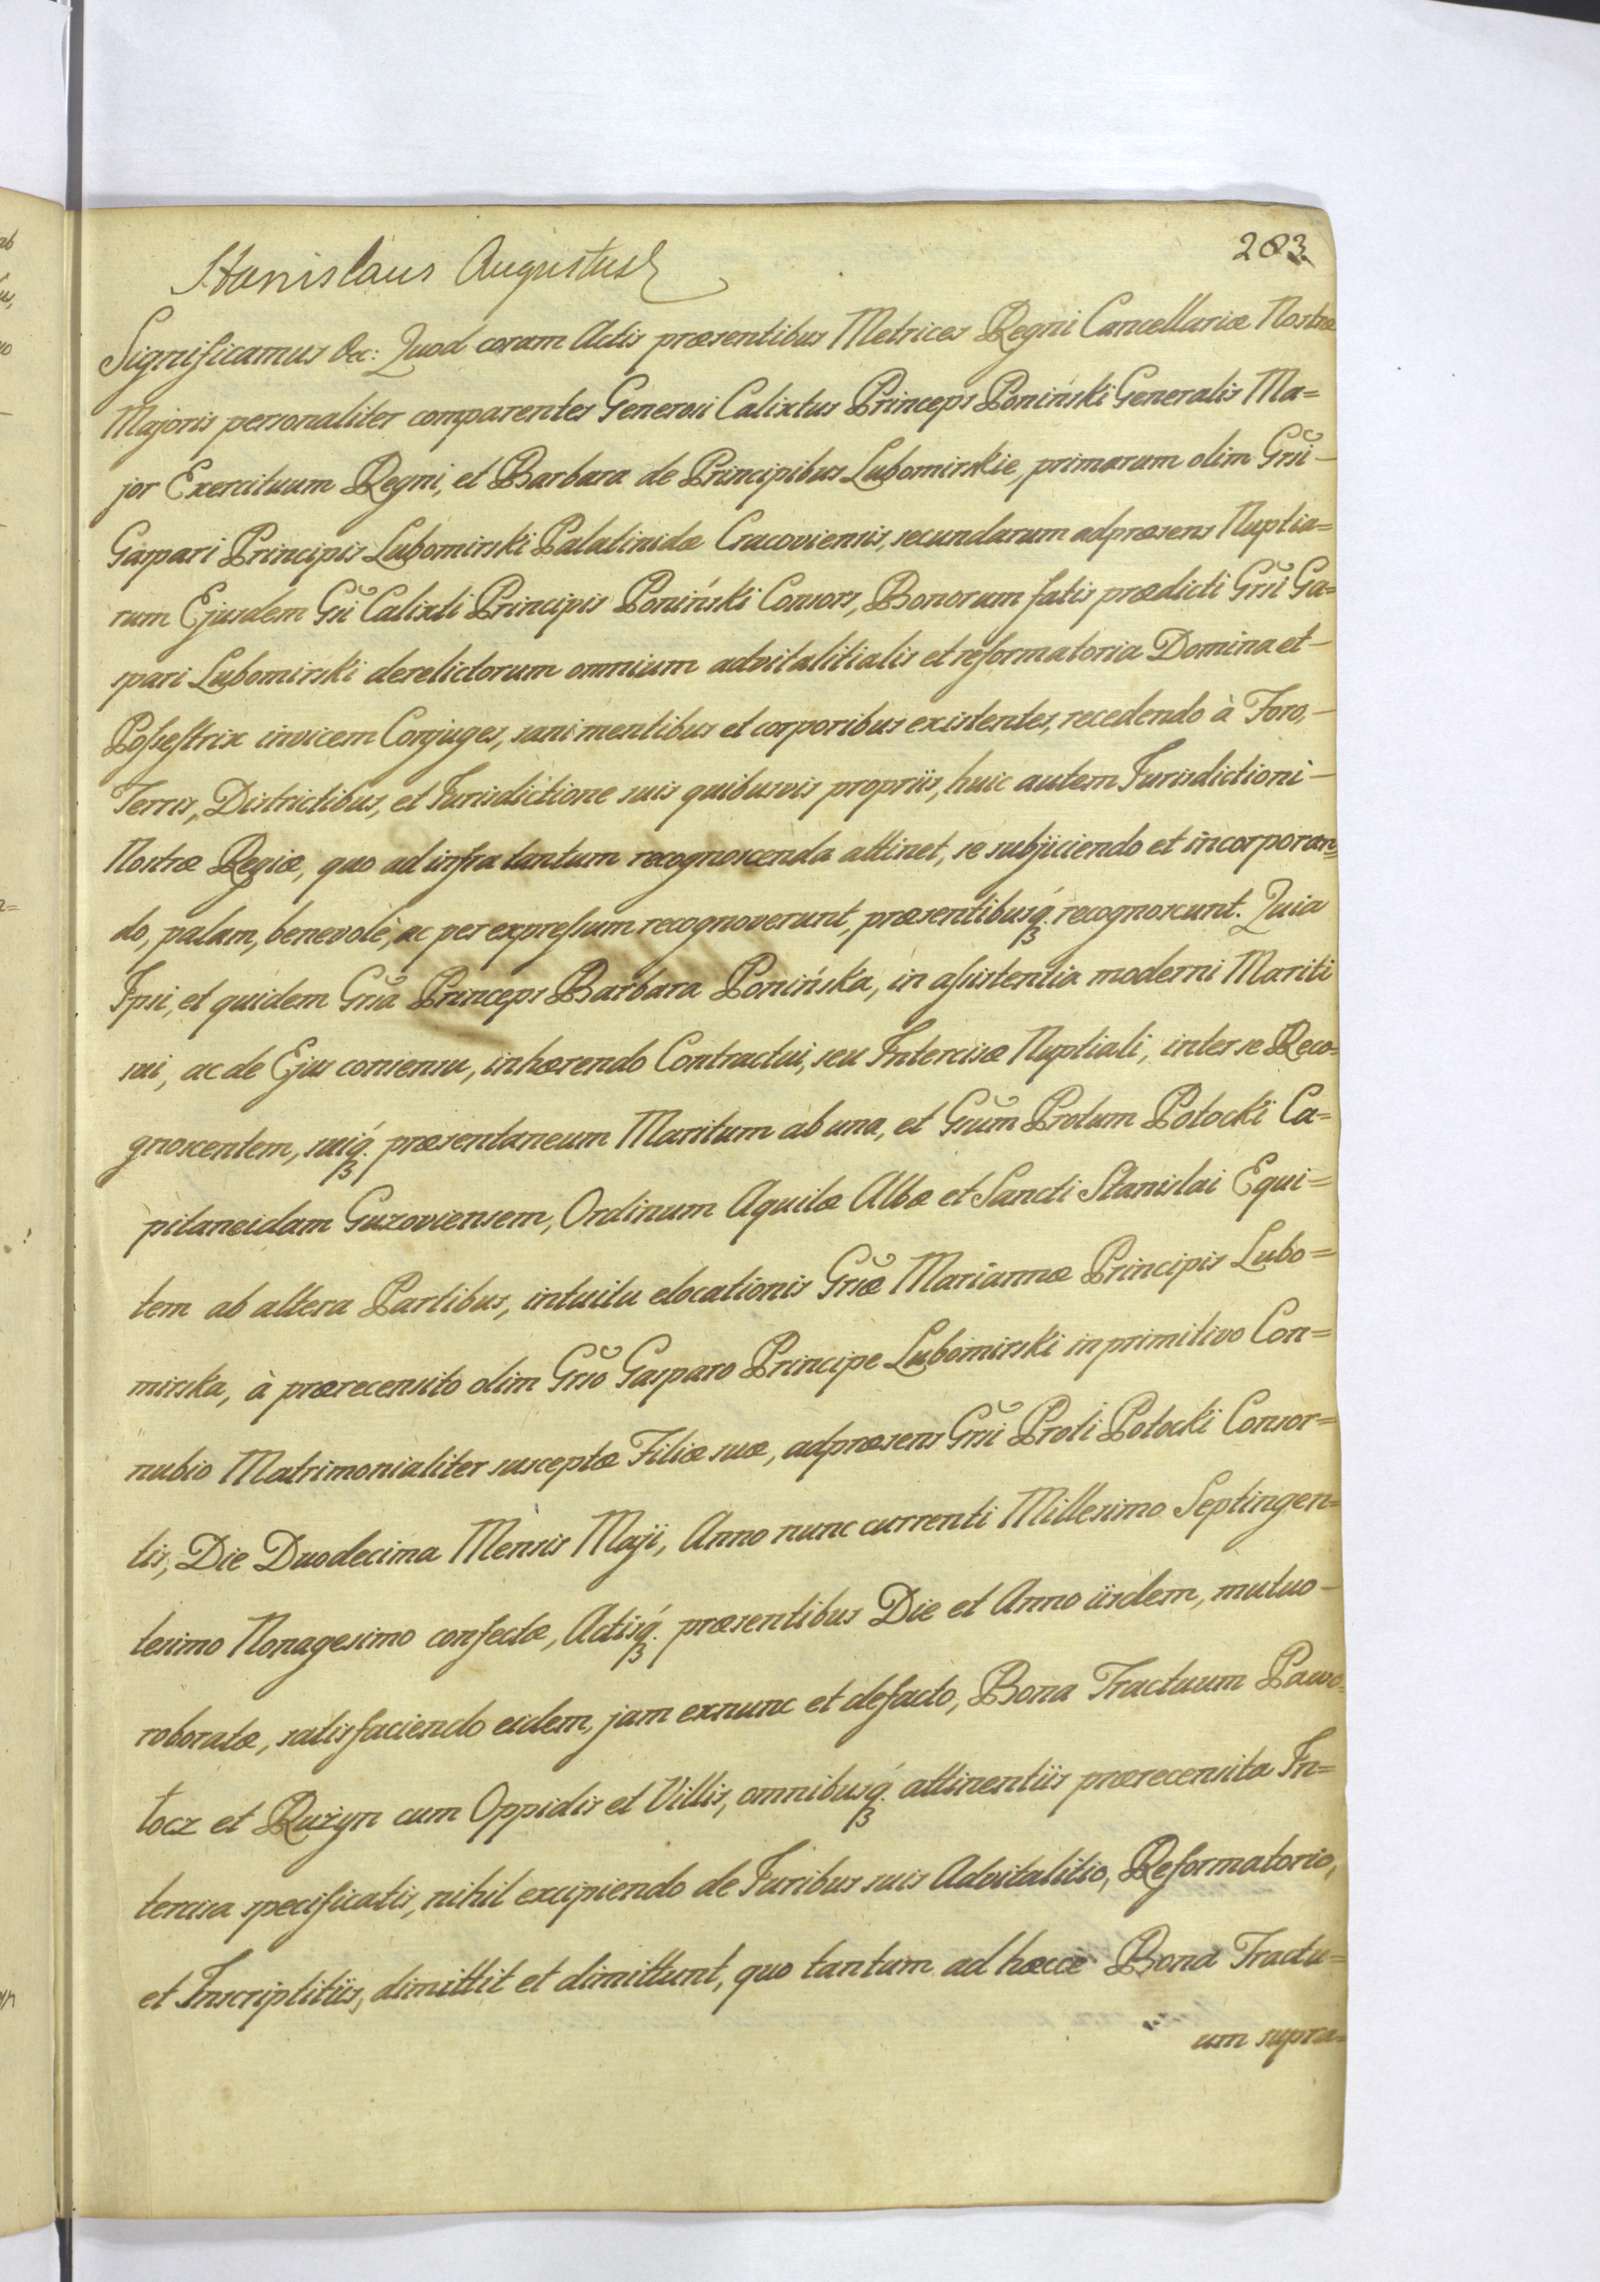 283
Stanislaus Augustus
Significamus &c: Quod coram Actis præsentibus Metrices Regni Cancellariæ Nostræ
Majoris personaliter comparentes Generosi Calixtus Princeps Poniński Generalis Ma=
jor Exercituum Regni, et Barbara de Principibus Lubomirskie, primarum olim Grsi
Gaspari Principis Lubomirski Palatinidæ Cracoviensis, secundarum adpræsens Nuptia=
rum Ejusdem Gsi Calixti Principis Poniński Consors, Bonorum fatis prædicti Grsi Ga=
spari Lubomirski derelictorum omnium advitalitialis et reformatoria Domina et
Possestrix invicem Conjuges, sani mentibus et corporibus existentes, recedendo à Foro,
Terris, Districtibus, et Jurisdictione suis quibusvis propriis, huic autem Jurisdictioni
Nostræ Regiæ, quo ad infra tantum recognoscenda attinet, se subjiciendo et incorporan=
do, palam, benevolè, ac per expressum recognoverunt, præsentibusq́ʒ recognoscunt. Quia
Ipsi, et quidem Grsa Princeps Barbara Ponińska, in assistentia moderni Mariti
sui, ac de Ejus consensu, inhærendo Contractui, seu Intercisæ Nuptiali, inter se Reco=
gnoscentem, suiq́ʒ præsentaneum Maritum ab una, et Gsum Protum Potocki Ca=
pitaneidam Guzoviensem, Ordinum Aquilæ Albæ et Sancti Stanislai Equi=
tem ab altera Partibus, intuitu elocationis Grsæ Mariannæ Principis Lubo=
mirska, à prærecensito olim Grso Gasparo Principe Lubomirski in primitivo Con=
nubio Matrimonialiter susceptæ Filiæ suæ, adpræsens Grsi Proti Potocki Consor=
tis, Die Duodecima Mensis Maji, Anno nunc currenti Millesimo Septingen=
tesimo Nonagesimo confectæ, Actisq́ʒ præsentibus Die et Anno iisdem, mutuo
roboratæ, satisfaciendo eidem, jam exnunc et defacto, Bona Tractuum Pawo=
łocz et Rużyn cum Oppidis et Villis, omnibusq́ʒ attinentiis prærecensita In=
tercisa specificatis, nihil excipiendo de Juribus suis Advitalitio, Reformatorio,
et Inscriptitiis, dimittit et dimittunt, quo tantum ad hæcce Bona Tractu=
um supra=